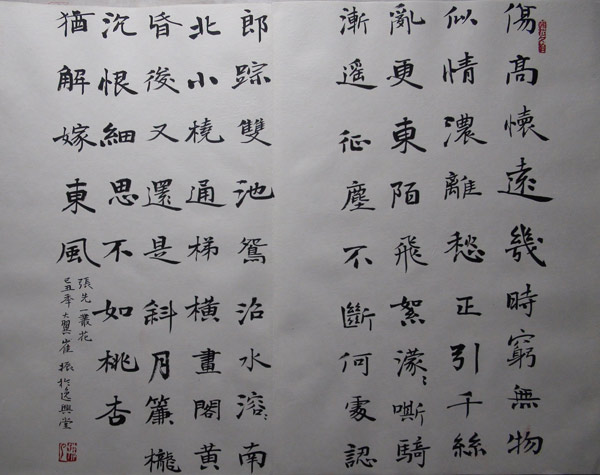 傷高懷遠幾時窮無物
似情濃離愁正引千絲
亂更東陌飛絮濛〻嘶騎
漸遥征塵不斷何處認
郎踪雙池鴛沿水溶〻南
北小橈通梯橫畫閣黃
昏後又還是斜月簾櫳
沉恨細思不如桃杏
猶解嫁東風
張先一叢花
己丑季大翼崔振於逸興堂